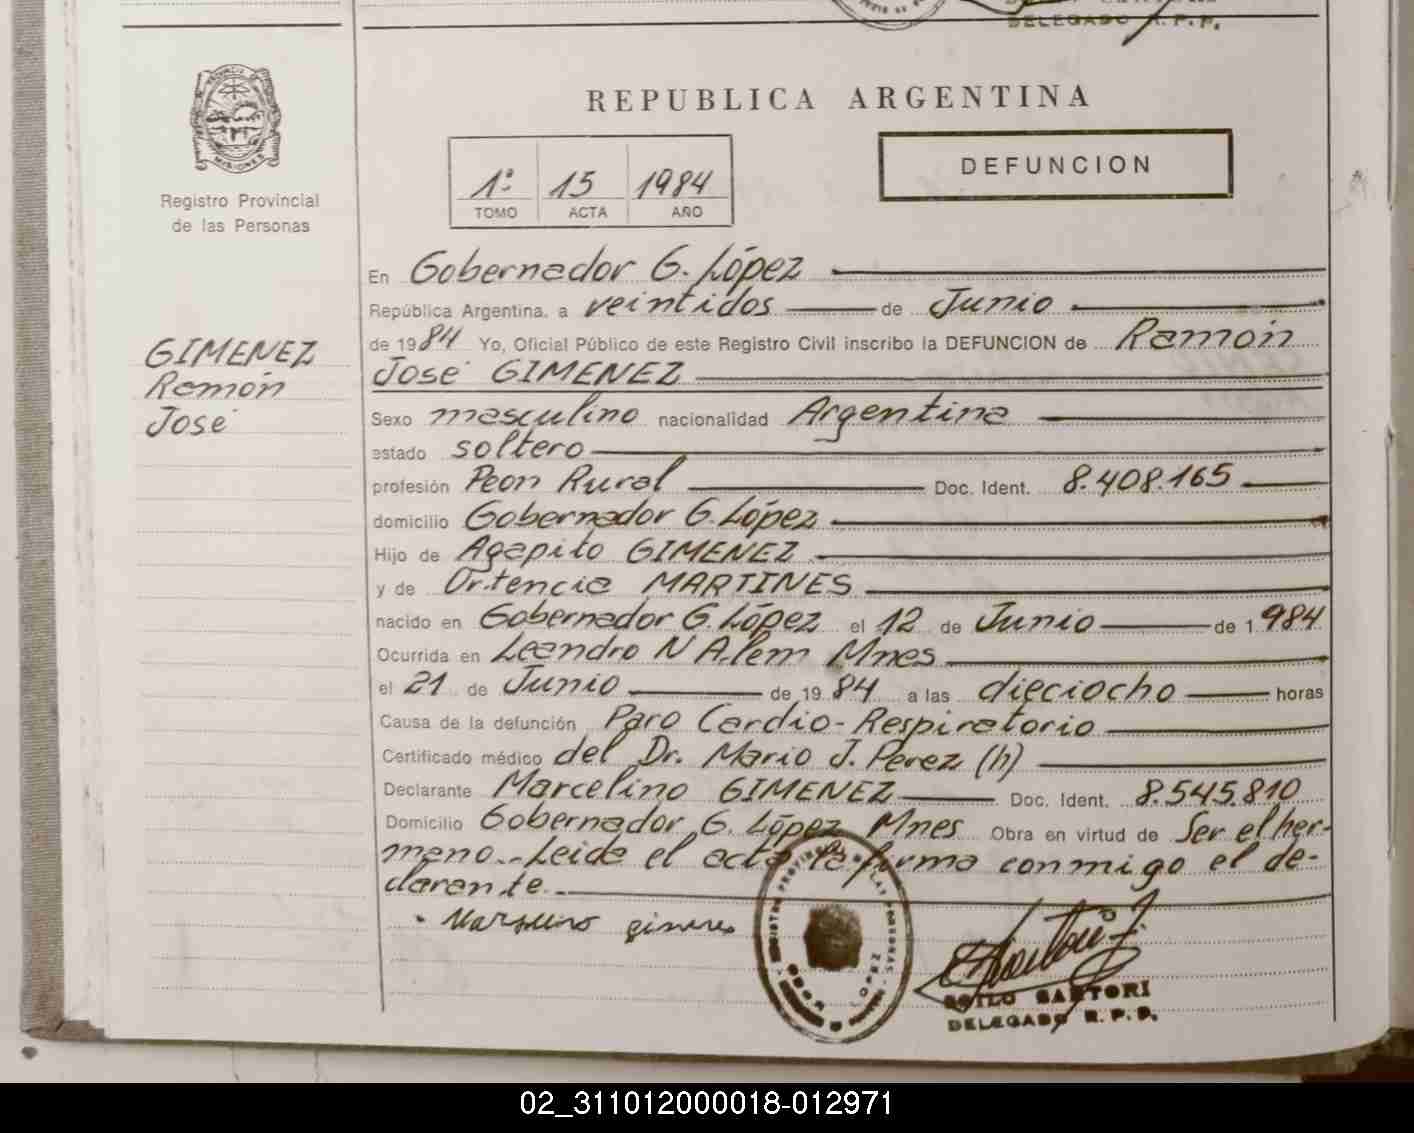 DELEGADO R.P.P.
PROVINCIA DE
MISIONES
Registro Provincial
de las Personas
REPUBLICA ARGENTINA
DEFUNCION
1º 15 1984
TOMO ACTA AÑO
En Gobernador G. López
República Argentina, a veintidos de Junio
de 1984 Yo, Oficial Público de este Registro Civil inscribo la DEFUNCION de Ramón
José GIMENEZ
GIMENEZ
Ramón
José
Sexo masculino nacionalidad Argentina
estado soltero
profesión Peon Rural Doc. Ident. 8.408.165
domicilio Gobernador G. López
Hijo de Agapito GIMENEZ
y de Ortencia MARTINES
nacido en Gobernador G. López el 12 de Junio de 1.984
Ocurrida en Leandro N Alem Mnes
el 21 de Junio de 1984 a las dieciocho horas
Causa de la defunción Paro Cardio-Respiratorio
Certificado médico del Dr. Mario J. Perez (h)
Declarante Marcelino GIMENEZ Doc. Ident. 8.545.810
Domicilio Gobernador G. López Mnes Obra en virtud de Ser el her-
mano.- Leida el acta la firma conmigo el de-
clarante.
SARTORI
DELEGADO R.P.P.
02_311012000018-012971